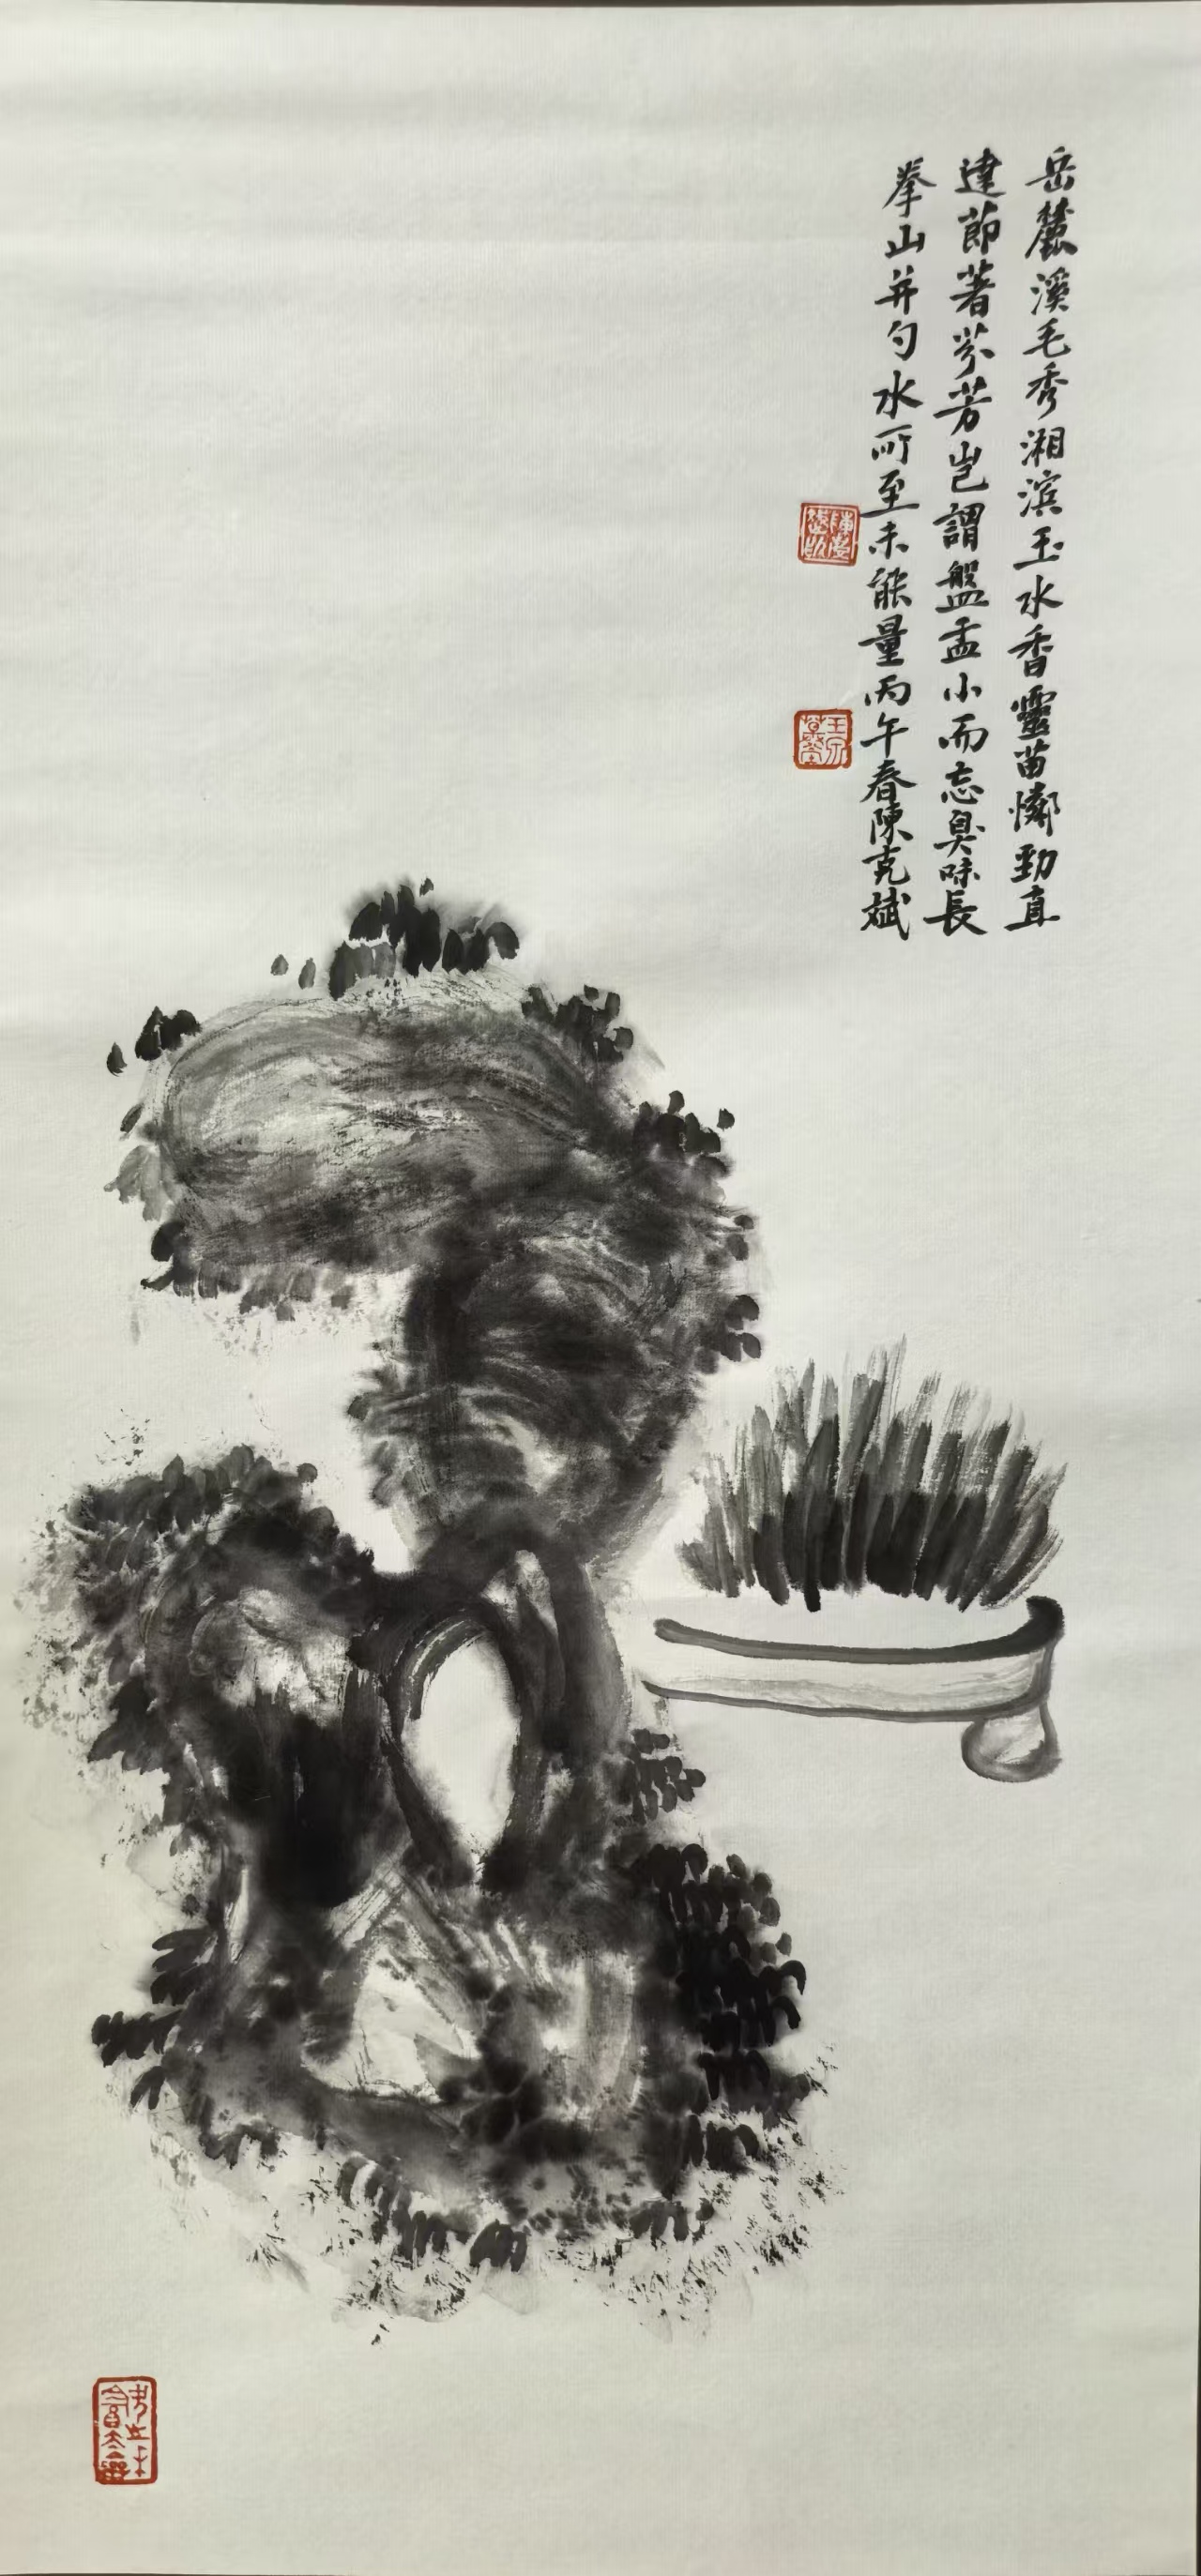 岳麓溪毛秀湘滨玉水香靈苗憐勁直
建節著芬芳岂謂盤盂小而忘臭味長
拳山并勺水所至未能量丙午春陳克斌